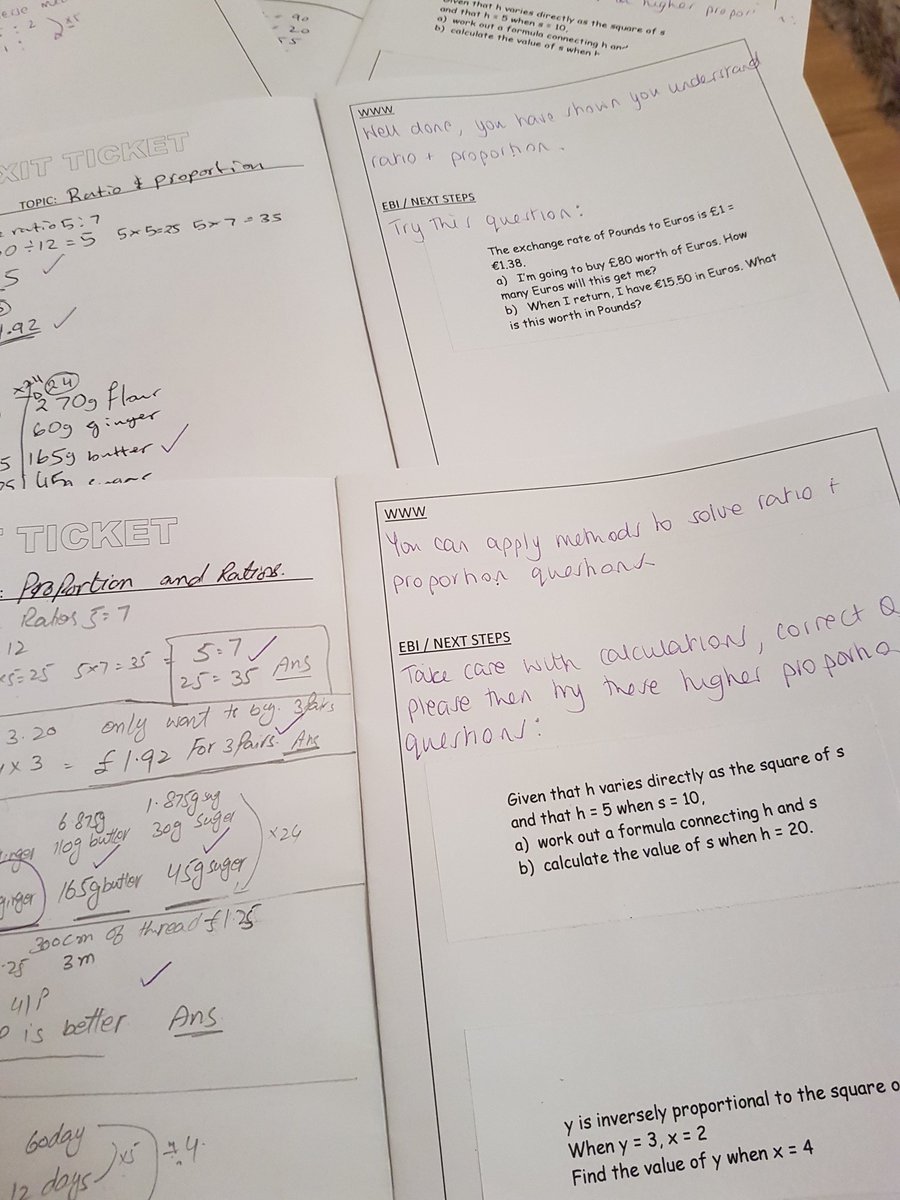 : 2
1 :
2
x5
= 90
= 20
55
Given that h varies directly as the square of s
and that h = 5 when s = 10,
a) work out a formula connecting h and
b) calculate the value of s when h
higher propor
EXIT TICKET
TOPIC: Ratio & proportion
ratio 5:7
÷ 12 = 5 5x5=25 5x7=35
5
1.92
24
270g flour
60g ginger
165g butter
45g
WWW
Well done, you have shown you understand
ratio + proportion.
EBI / NEXT STEPS
Try this question:
The exchange rate of Pounds to Euros is £1 =
€1.38.
a) I'm going to buy £80 worth of Euros. How
many Euros will this get me?
b) When I return, I have €15.50 in Euros. What
is this worth in Pounds?
TICKET
: Proportion and Ratios.
Ratios 5=7
12
x5=25 5x7=35 = 5:7
25=35 Ans
3.20 only want to buy 3 pairs
x3 = £1.92 For 3 Pairs. Ans
6.875g 1.875g sug
110g butter 30g suger
x24
ginger 165g butter 45g suger
300cm of thread £1.25
.25 3m
41P
is better Ans
60day
12 days
x5
4.
WWW
You can apply methods to solve ratio +
proportion questions
EBI / NEXT STEPS
Take care with calculations, correct Q
please then try these higher proportio
questions:
Given that h varies directly as the square of s
and that h = 5 when s = 10,
a) work out a formula connecting h and s
b) calculate the value of s when h = 20.
y is inversely proportional to the square o
When y = 3, x = 2
Find the value of y when x = 4